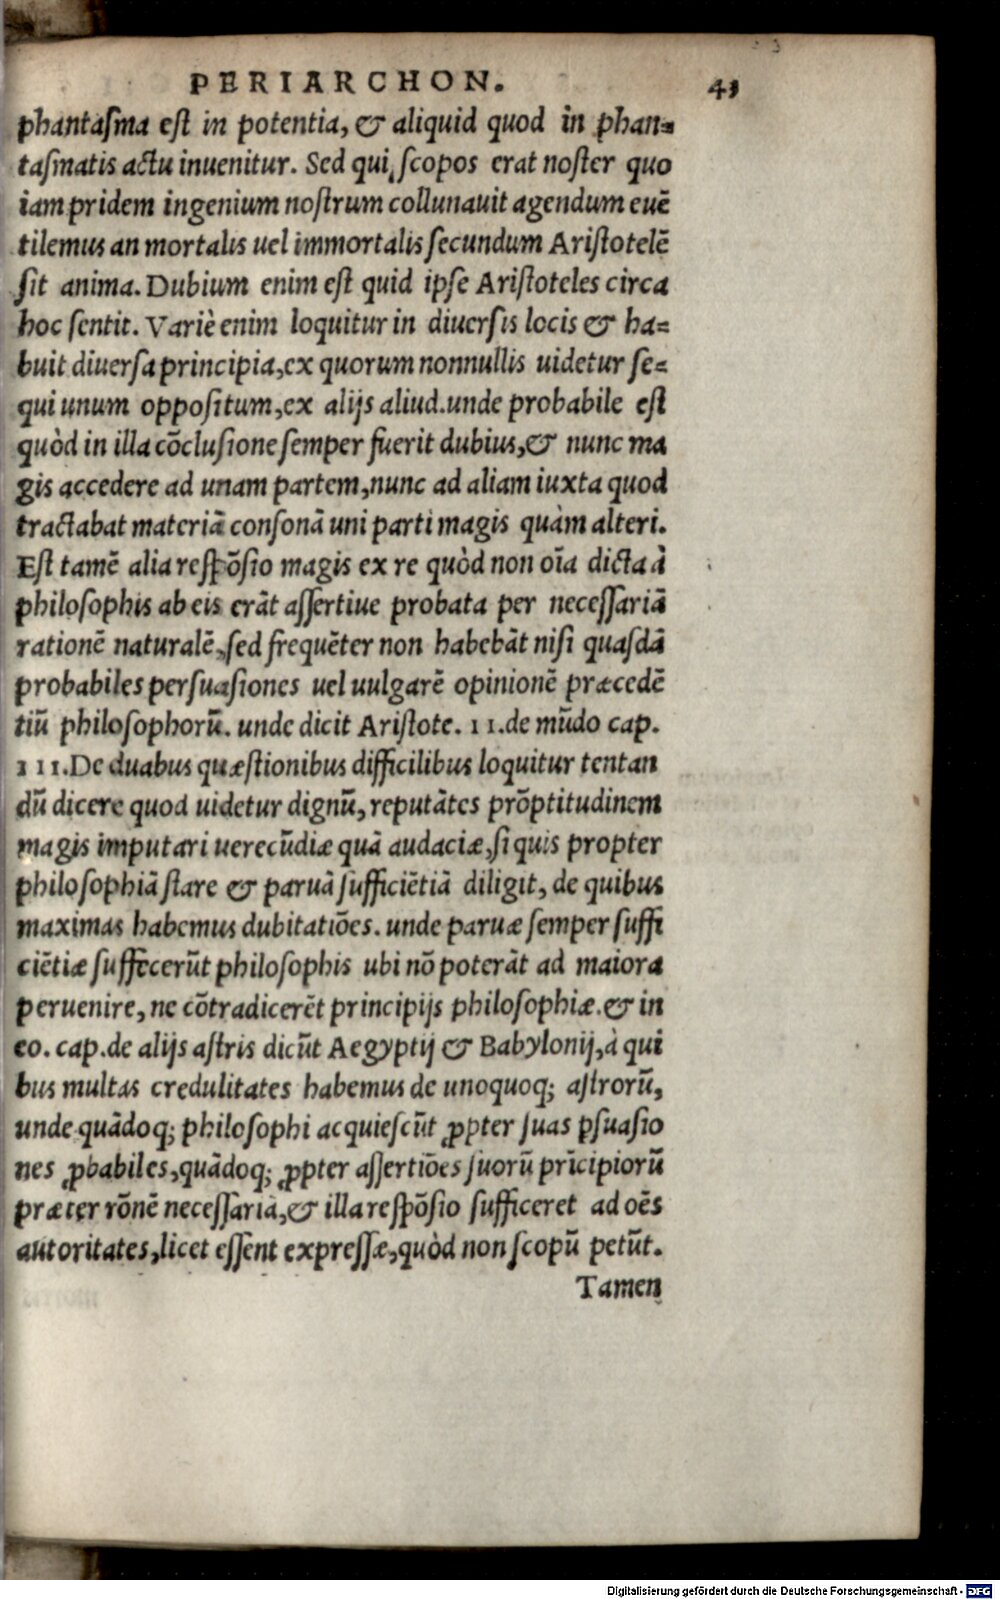 PERIARCHON. 43
phantaſma eſt in potentia, & aliquid quod in phan=
taſmatis actu inuenitur. Sed qui ſcopos erat noſter quo
iam pridem ingenium noſtrum collunauit agendum euē
tilemus an mortalis uel immortalis ſecundum Ariſtotelē
ſit anima. Dubium enim eſt quid ipſe Ariſtoteles circa
hoc ſentit. Variè enim loquitur in diuerſis locis & ha=
buit diuerſa principia, ex quorum nonnullis uidetur ſe=
qui unum oppoſitum, ex alijs aliud. unde probabile eſt
quòd in illa cōcluſione ſemper fuerit dubius, & nunc ma
gis accedere ad unam partem, nunc ad aliam iuxta quod
tractabat materiā conſonā uni parti magis quàm alteri.
Eſt tamē alia reſpōſio magis ex re quòd non oīa dicta à
philoſophis ab eis erāt aſſertiue probata per neceſſariā
rationē naturalē, ſed frequēter non habebāt niſi quaſdā
probabiles perſuaſiones uel uulgarē opinionē præcedē
tiū philoſophorū. unde dicit Ariſtote. 11. de mūdo cap.
111. De duabus quæſtionibus difficilibus loquitur tentan
dū dicere quod uidetur dignū, reputātes prōptitudinem
magis imputari uerecūdiæ quā audaciæ, ſi quis propter
philoſophiā ſtare & paruā ſufficiētiā diligit, de quibus
maximas habemus dubitatiōes. unde paruæ ſemper ſuffi
ciētiæ ſuffecerūt philoſophis ubi nō poterāt ad maiora
peruenire, ne cōtradicerēt principijs philoſophiæ. & in
eo. cap. de alijs aſtris dicūt Aegyptij & Babylonij, à qui
bus multas credulitates habemus de unoquoq; aſtrorū,
unde quādoq; philoſophi acquieſcūt ꝓpter ſuas pſuaſio
nes ꝓbabiles, quādoq; ꝓpter aſſertiōes ſuorū prīcipiorū
præter rōnē neceſſariā, & illa reſpōſio ſufficeret ad oēs
autoritates, licet eſſent expreſſæ, quòd non ſcopū petūt.
Tamen
Digitalisierung gefördert durch die Deutsche Forschungsgemeinschaft - DFG